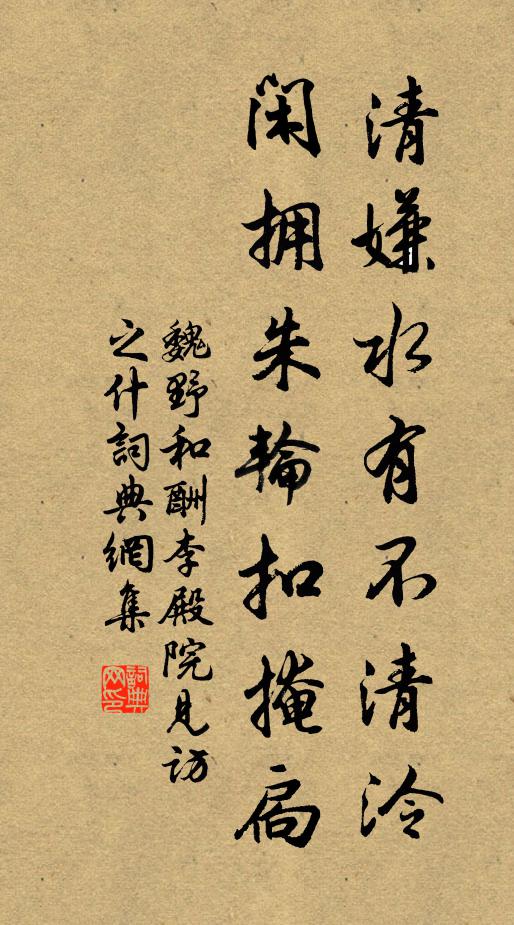 清嫌水有不清泠
閑拥朱輪扣掩扃
魏野和酬李殿院見訪
之什詞典網集
詞典网印